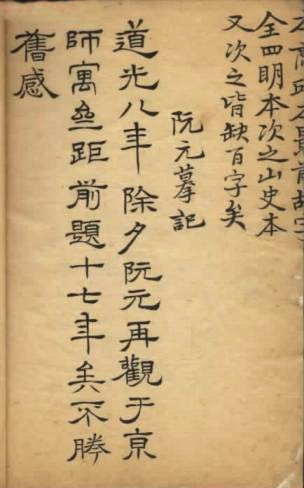 本最前故字
全四明本次之山史本
又次之皆缺百字矣
阮元摹記
道光八年除夕阮元再觀于京
師寓齋距前題十七年矣不勝
舊感